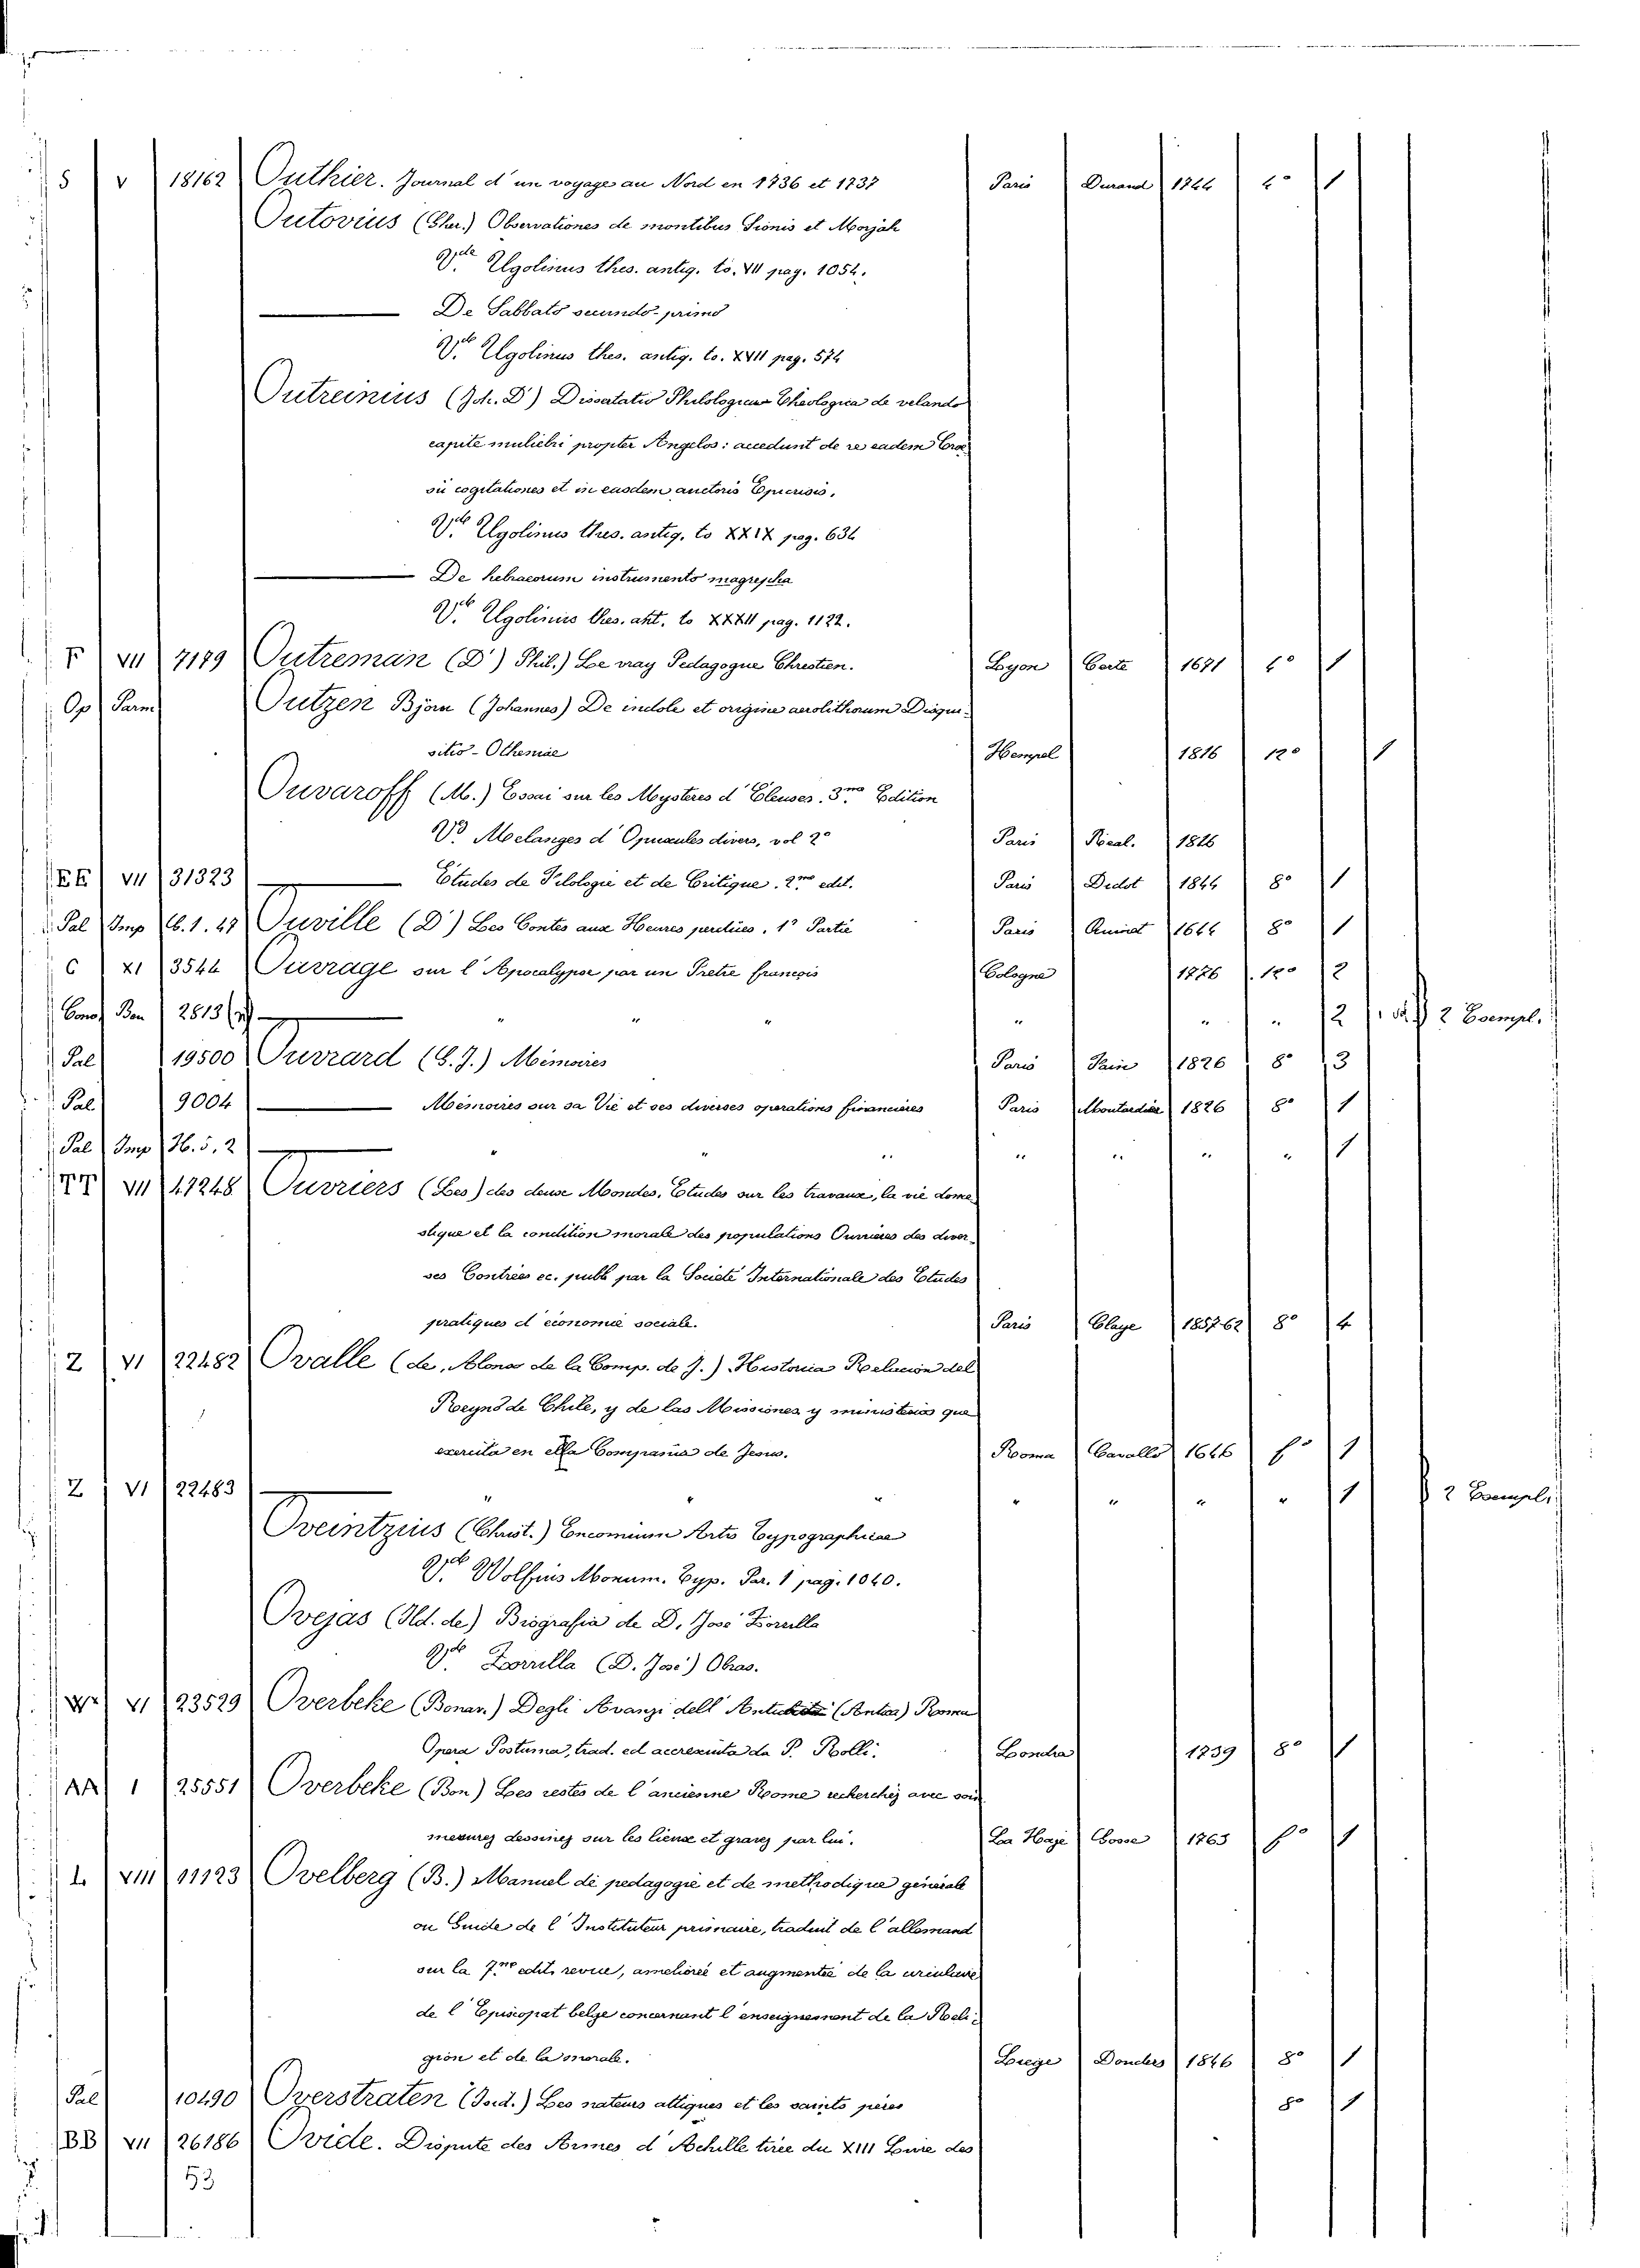 S V 18162 Outhier. Journal d'un voyage au Nord en 1736 et 1737 Paris Durand 1744 4° 1
Outovius (Gher.) Observationes de montibus Sionis et Morjah
V.de Ugolinus thes. antig. to. VII pag. 1054.
De Sabbato secundo-primo
V.de Ugolinus thes. antig. to. XVII pag. 574
Outreinius (Joh. D') Dissertatio Philologico-Theologica de velando
capite muliebri propter Angelos: accedunt de re eadem Croe
sii cogitationes et in easdem auctoris Epicrisis.
V.de Ugolinus thes. antig. to XXIX pag. 634
De hebraeorum instrumento magrepha
V.de Ugolinus thes. ant. to XXXII pag. 1122.
F VII 7179 Outreman (D') Phil.) Le vray Pedagogue Chrestien. Lyon Carte 1671 4° 1
Op Parm Outzen Björn (Johannes) De indole et origine aerolithorum Disqui-
sitio - Otheniae Hempel 1816 12° 1
Ouvaroff (M.) Essai sur les Mysteres d'Eleuses. 3.me Edition
V.o Melanges d'Opuscules divers, vol 2° Paris Real. 1816
EE VII 31323 Etudes de Filologie et de Critique. 2.me edit. Paris Didot 1844 8° 1
Pal Imp C. 1. 41 Ouville (D') Les Contes aux Heures perdues. 1° Partie Paris 1644 8° 1
C XI 3544 Ouvrage sur l'Apocalypse par un Pretre françois Cologne 1776 12° 2
Conv Ben 2813 " " " " " " 2 2 Esempl.
Pal 19500 Ouvrard (G. J.) Mémoires Paris Pain 1826 8° 3
Pal 9004 Mémoires sur sa Vie et ses diverses operations financieres Paris Moutardier 1826 8° 1
Pal Imp H. 5. 2 " " " " " " " 1
TT VII 41248 Ouvriers (Les) des deux Mondes. Etudes sur les travaux, la vie dome
stique et la condition morale des populations Ouvrieres des diver-
ses Contrées ec. publ par la Societé Internationale des Etudes
pratiques d'économie sociale. Paris Claye 1857-62 8° 4
Z VI 22482 Ovalle (de, Alonso de la Comp. de J.) Historica Relacion del
Reyno de Chile, y de las Missiones y ministerios que
exercita en ella Compania de Jesus. Roma Cavallo 1646 f° 1
Z VI 22483 " " " " " " " 1 2 Esempl.
Oveintzius (Christ.) Encomium Artis Typographicae
V.de Wolfius Monum. Typ. Par. 1 pag. 1040.
Ovejas (Ild. de) Biografia de D. José Zorrilla
V.de Zorrilla (D. José) Obras.
VI 23529 Overbeke (Bonav.) Degli Avanzi dell' Antichità (Antica) Roma
Opera Postuma, trad. ed accresciuta da P. Rolli. Londra 1739 8° 1
AA 1 25551 Overbeke (Bon) Les restes de l'ancienne Rome recherchez avec soin
mesurez dessinez sur les lieux et gravez par lui. La Haje Gosse 1763 f° 1
L VIII 11123 Ovelberg (B.) Manuel de pedagogie et de methodique générale
ou Guide de l'Instituteur primaire, traduit de l'allemand
sur la 7.me edit. revue, ameliorée et augmentée de la circulaire
de l'Episcopat belge concernant l'enseignement de la Reli-
gion et de la morale. Liege Donders 1846 8° 1
Pal 10490 Overstraten (Isid.) Les rateurs attiques et les saints péres 8° 1
BB VII 26186 Ovide. Dispute des Armes d'Achille tirée du XIII Livre des
53